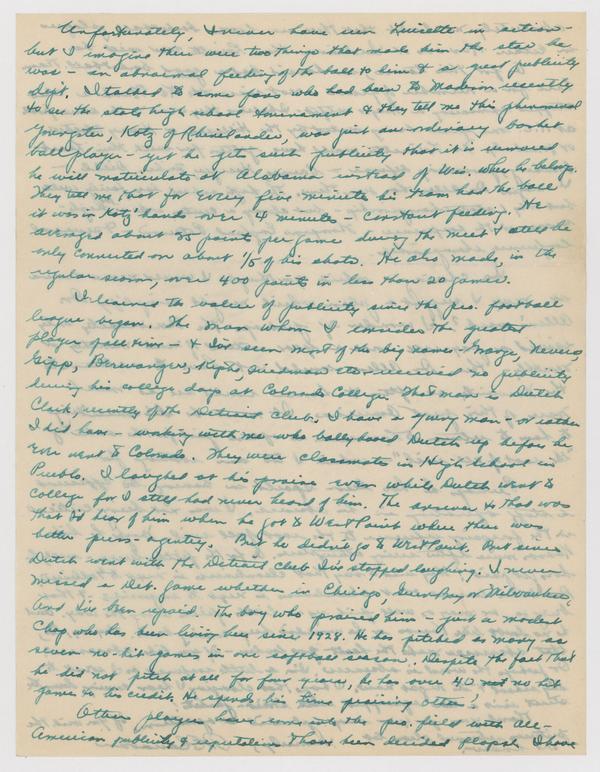 Unfortunately, I never have seen Luisetti in action -
but I imagine there were two things that made him the star he
was - an abnormal feeding of the ball to him & a great publicity
dept. I talked to some fans who had been to Madison recently
to see the state high school tournament & they tell me this phenomenal
youngster, Kotz of Rhinelander, was just an ordinary basket
ball player - yet he gets such publicity that it is rumored
he will matriculate at Alabama instead of Wis. where he belongs.
They tell me that for every five minutes his team had the ball
it was in Kotz' hands over 4 minutes - constant feeding. He
averaged about 25 points per game during the meet & still he
only connected on about 1/5 of his shots. He also made, in the
regular season, over 400 points in less than 20 games.
I learned the value of publicity since the pro. football
league began. The man whom I consider the greatest
player of all time - & I've seen most of the big names - Grange, Nevers,
Gipp, Berwanger, Friedman etc. - received no publicity
during his college days at Colorado College. That man is Dutch
Clark, recently of the Detroit club. I have a young man - or rather
I did have - working with me who ballyhooed Dutch up before he
ever went to Colorado. They were classmates in High School in
Pueblo. I laughed at his praise even while Dutch went to
college for I still had never heard of him. The answer to that was
that I'd hear of him when he got to West Point where there was
better press-agentry. But he didn't go to West Point. But since
Dutch went with the Detroit club I've stopped laughing. I never
missed a Det. game whether in Chicago, Green Bay or Milwaukee,
and I've been repaid. The boy who praised him - just a modest
chap who has been living here since 1928. He has pitched as many as
seven no-hit games in one softball season. Despite the fact that
he did not pitch at all for four years, he has over 40 no hit
games to his credit. He spends his time praising others!
Other players have come into the pro. field with all-
American publicity & reputation & have been decided flops. I have